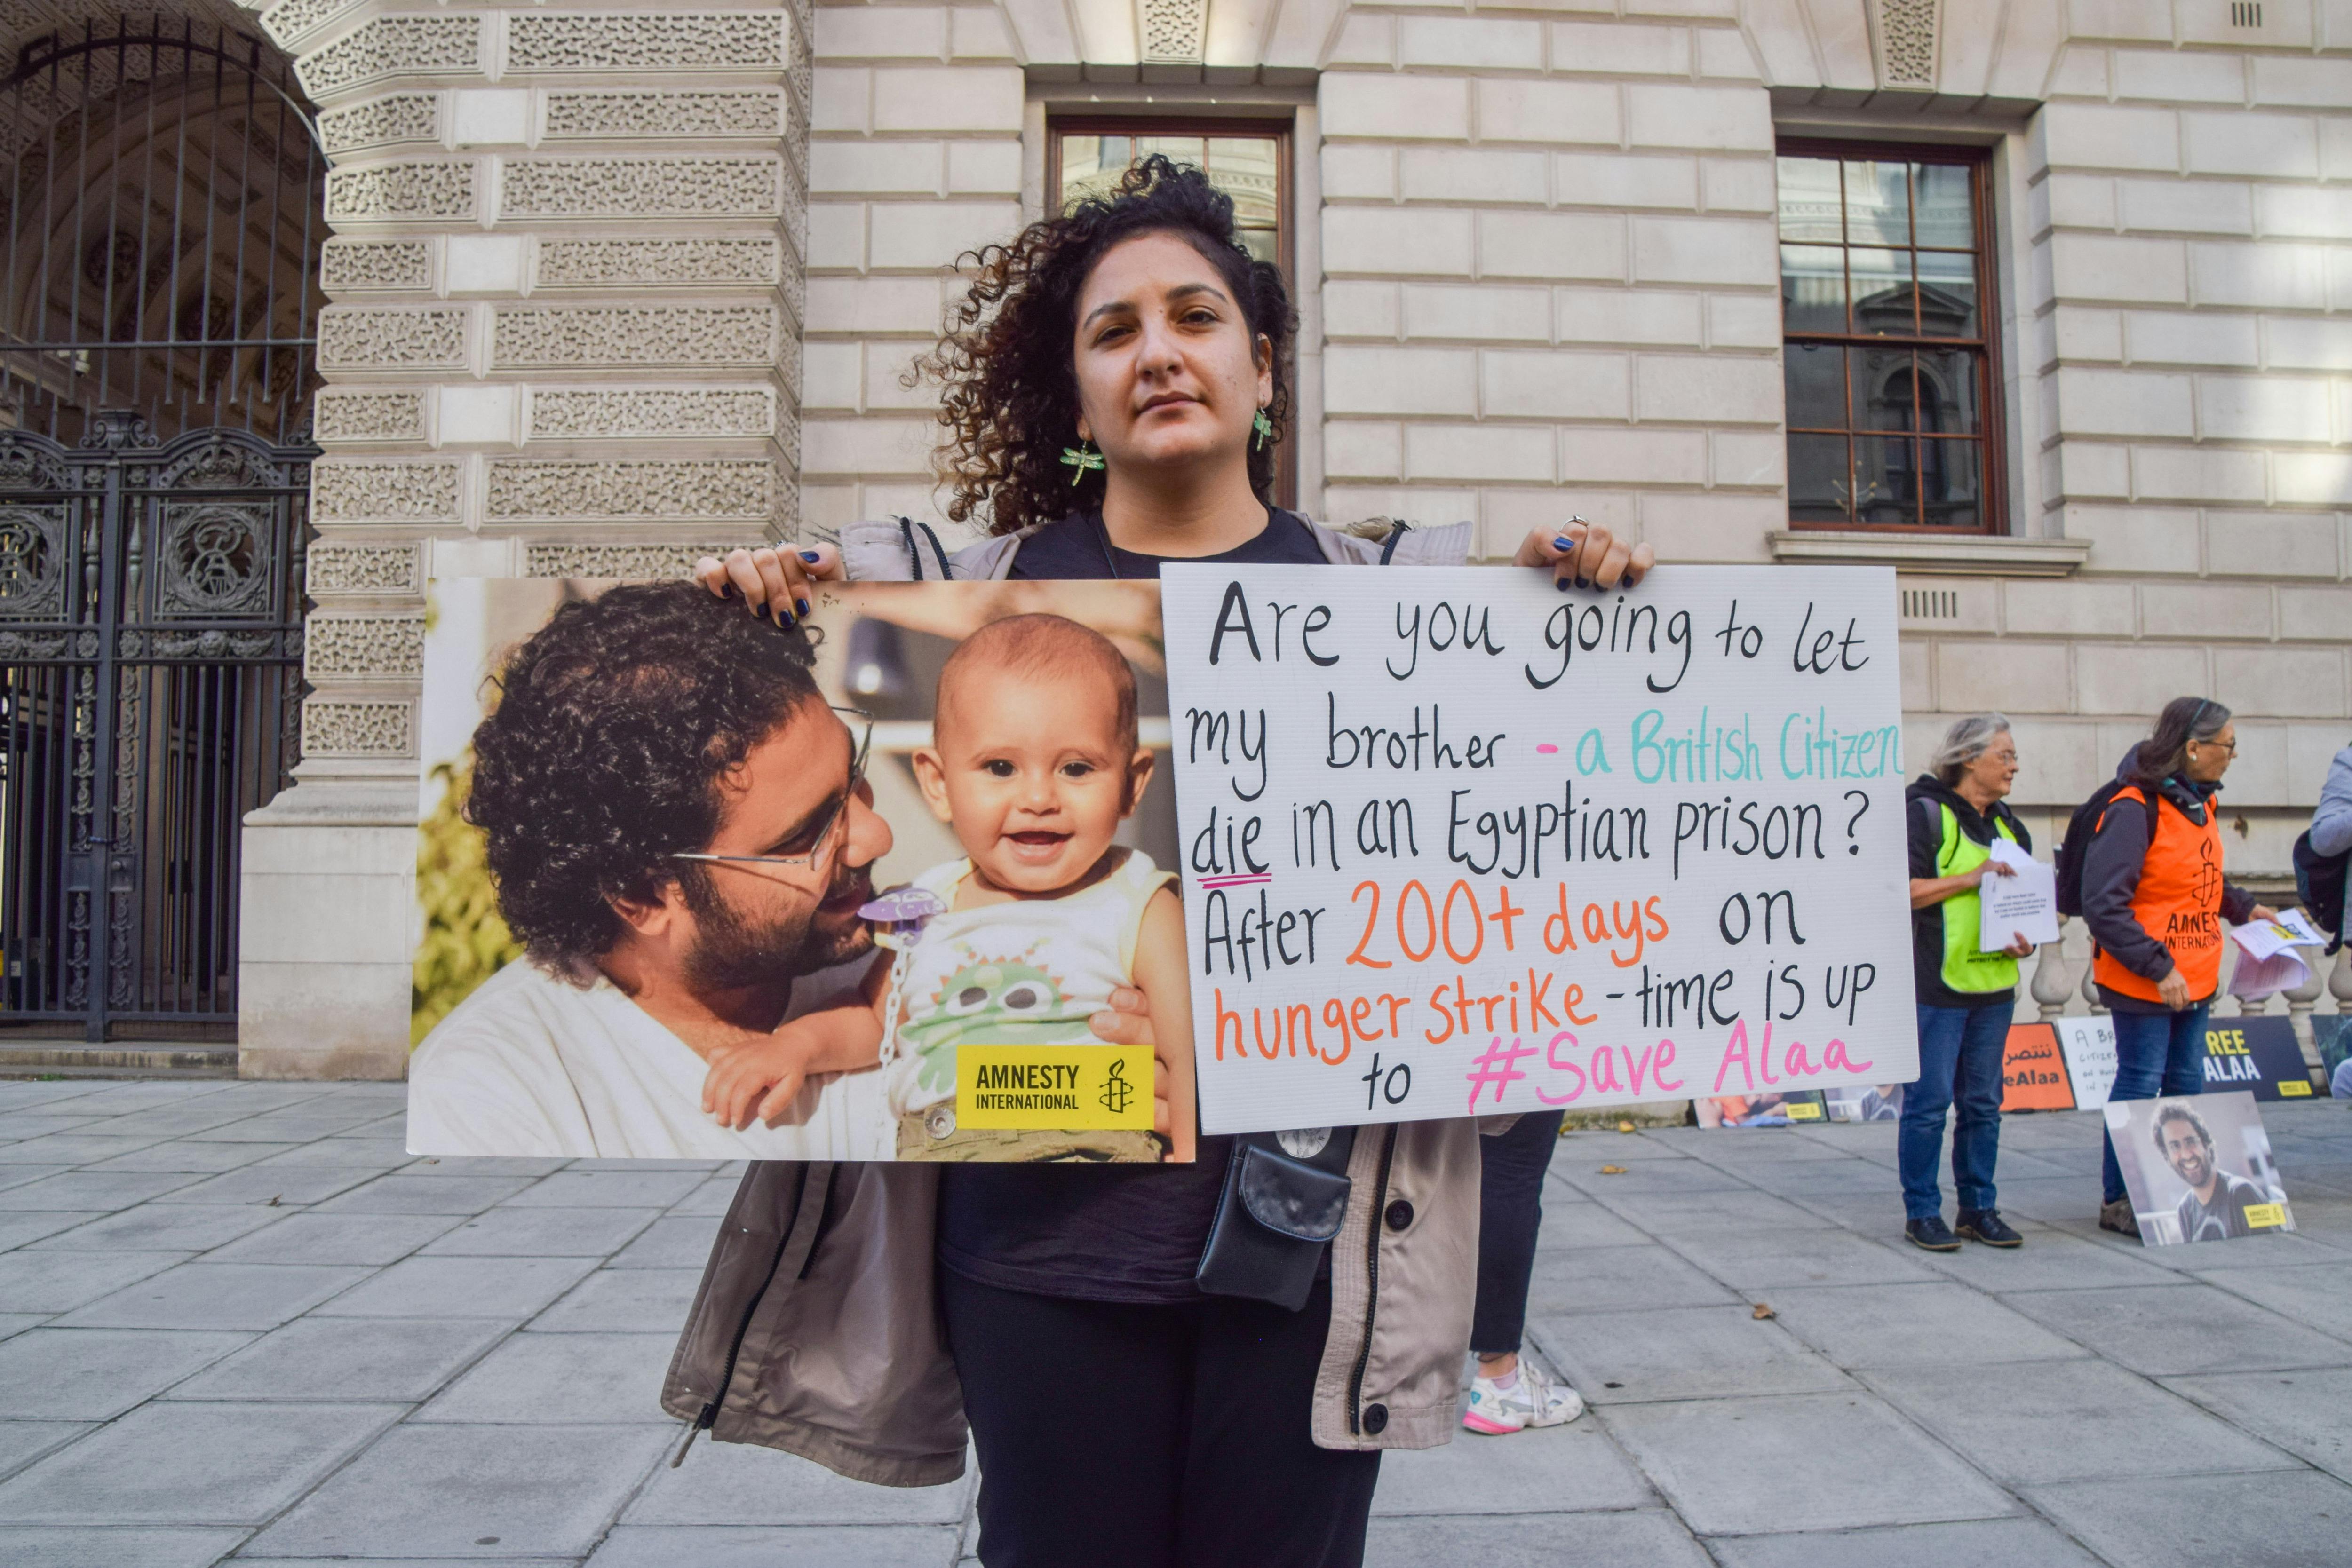 Are you going to let
my brother - a British Citizen
die in an Egyptian prison?
After 200+ days on
hunger strike - time is up
to #Save Alaa
AMNESTY
INTERNATIONAL
AMNES
INTERNA
ننتصر
eAlaa
A BR
REE
ALAA